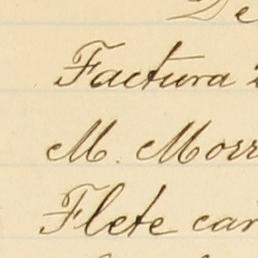 De
Factura
M. Morr
Flete car